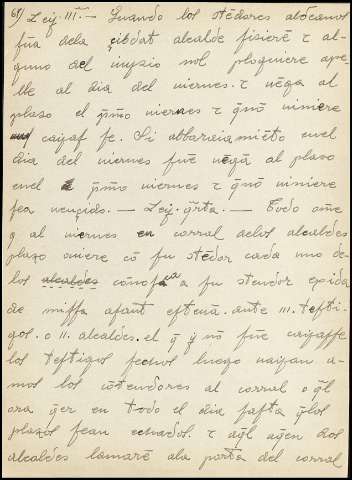 65/ Ley. III.ª — Quando los stẽdores aldeanos
fũa dela çibdat alcalde fisierẽ τ al-
guno del juyzio nol ploguiere ape-
lle al dia del viernes. τ vẽga al
plaso el p̃mo viernes τ q̃nõ viniere
cayaſ ſe. Si abbarẽiamiẽto enel
dia del viernes fuẽ vẽga al plaso
enel p̃mo viernes τ q̃nõ viniere
ſea vençido. — Ley. q̃rta. — Todo om̃e
q̃ al viernes en corral delos alcaldẽs
plazo oviere cõ ſu stẽdor cada uno de-
los alcaldẽs cõnoſca a ſu stendor exida
de miſſa aſant esteuã. ante III. teſti-
gos. o II. alcaldẽs. el q̃ ẏ nõ fuẽ cayaſſe
los teſtigos fechos luego vayan a-
mos los cõtendores al corral o q̃l
ora q̃er en todo el dia faſta q̃los
plazos ſean echados. τ aq̃l aq̃en dos
alcaldẽs lamarẽ ala porta del corral